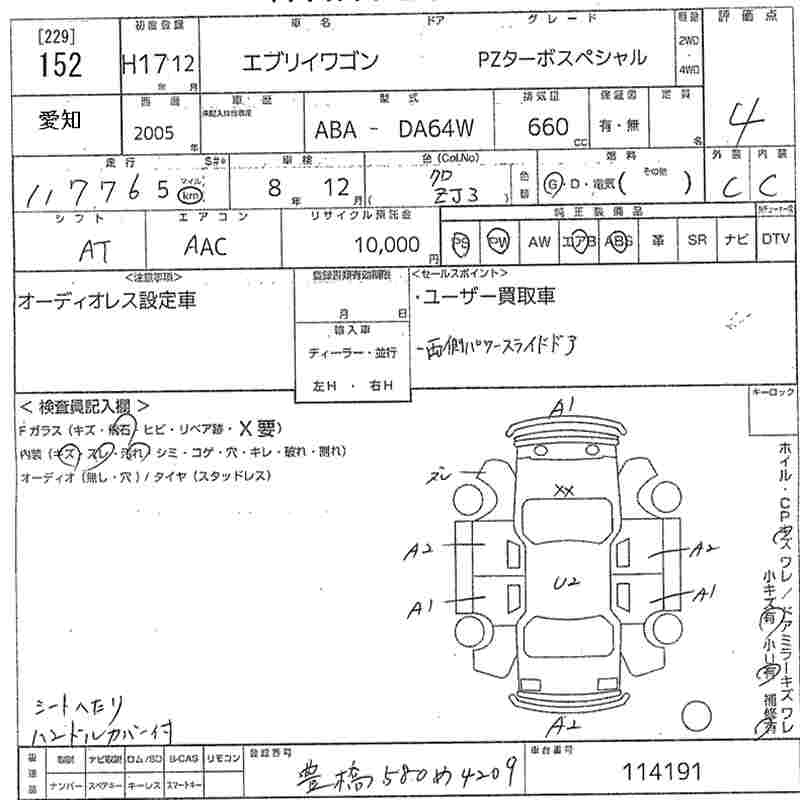 [229]
152
初度登録
H17 12
年 月
車名 ドア グレード
エブリイワゴン PZターボスペシャル
2WD
4WD
評価点
4
愛知
西暦
2005
年
車歴
型式
ABA - DA64W
排気量
660
CC
保証書
有・無
定員
名
走行
117765
マイル
km
S#*
車検
8年 12月
色(Col.No)
クロ
ZJ3
色替
燃料
G・D・電気( その他 )
外装
C
内装
C
シフト
AT
エアコン
AAC
リサイクル預託金
10,000
円
純正装備品
PS PW AW エアB ABS 革 SR ナビ DTV
<注意事項>
オーディオレス設定車
登録書類有効期限
月 日
輸入車
ディーラー・並行
左H ・ 右H
<セールスポイント>
・ユーザー買取車
-両側パワースライドドア
キーロック
<検査員記入欄>
Fガラス(キズ・飛石・ヒビ・リペア跡・X要)
内装(キズ・スレ・汚れ・シミ・コゲ・穴・キレ・破れ・割れ)
オーディオ(無し・穴)/タイヤ(スタッドレス)
A1
ズレ
XX
A2
A2
U2
A1
A1
A2
ホイル・CPキズワレ/ドアミラーキズワレ
小キズ有/小U有 補修有
シートへたり
ハンドルカバー付
取説 ナビ取説 ロム/SD B-CAS リモコン
ナンバー スペアキー キーレス スマートキー
登録番号
豊橋580め4209
車台番号
114191